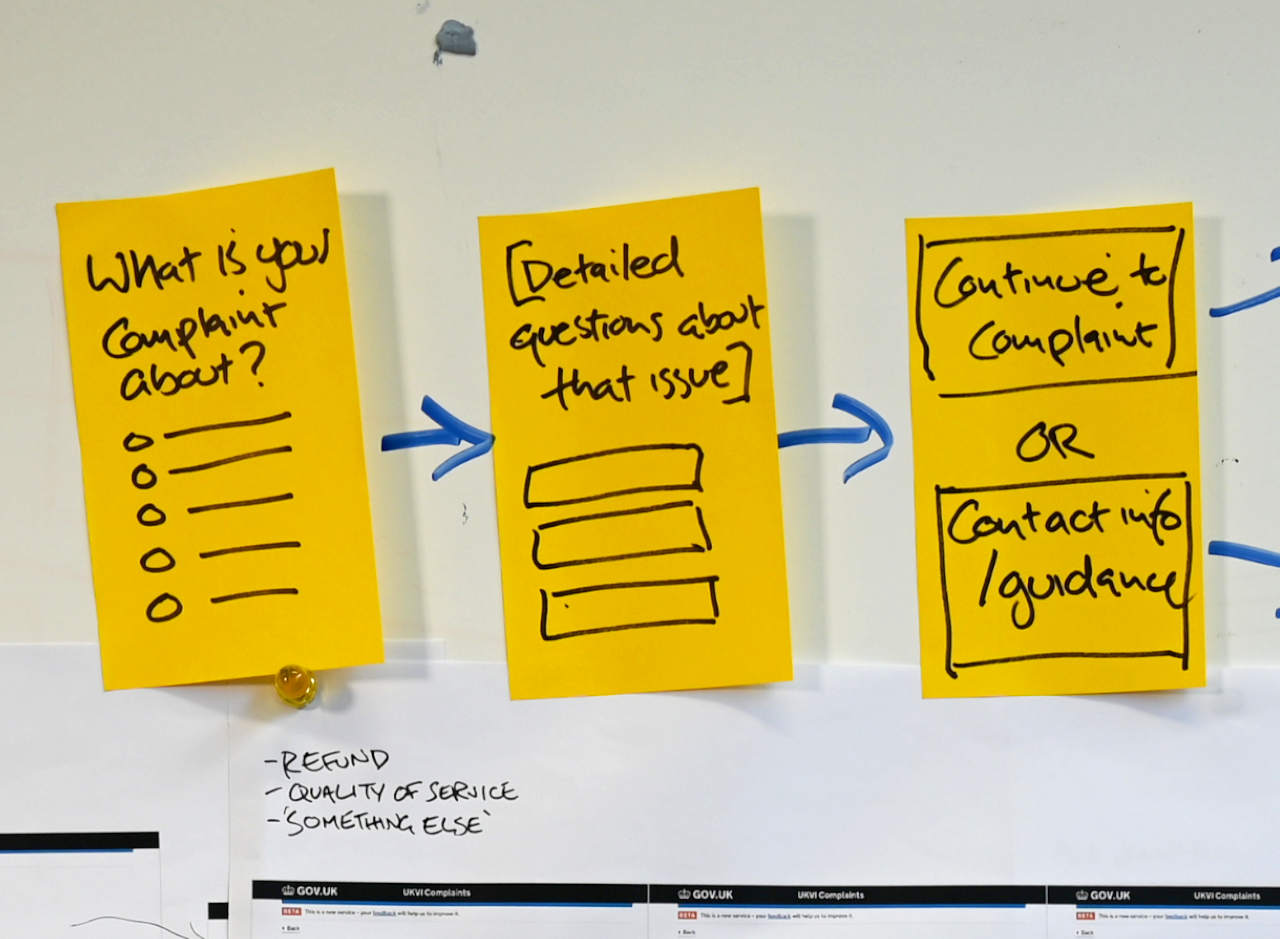 What is your
Complaint
about?
[Detailed
questions about
that issue]
Continue to
Complaint
OR
Contact info
/guidance
- REFUND
- QUALITY OF SERVICE
- 'SOMETHING ELSE'
GOV.UK UKVI Complaints
BETA This is a new service – your feedback will help us to improve it.
Back
GOV.UK UKVI Complaints
BETA This is a new service – your feedback will help us to improve it.
Back
GOV.UK UKVI Complaints
BETA This is a new service – your feedback will help us to improve it.
Back